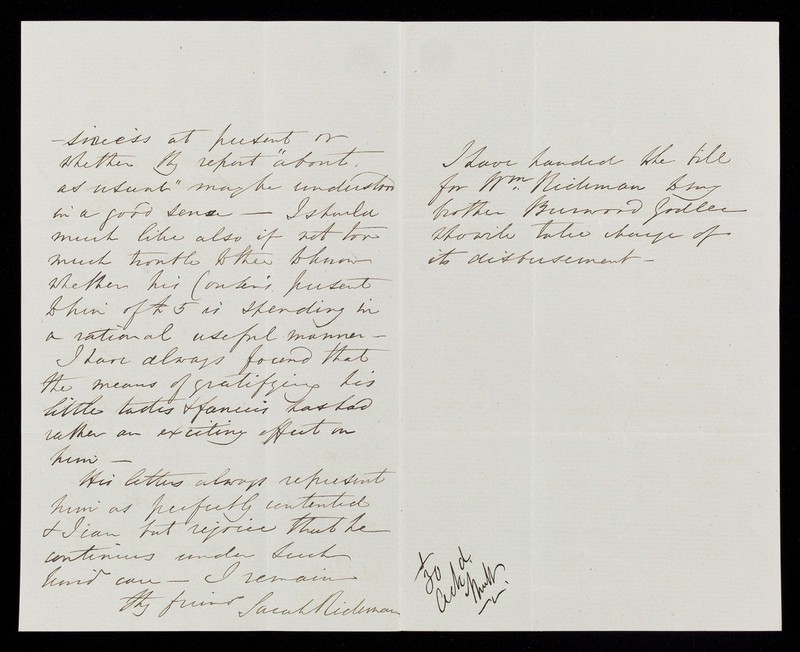 -siness at present or
whether thy report "about
as usual" may be understood
in a good sense — I should
much like also if not too
much trouble to thee to know
whether his Cousin's present
to him of £5 is spending in
a rational useful manner —
I have always found that
the means of gratifying his
little tastes & fancies has had
rather an exciting effect on
him —
His letters always represent
him as perfectly contented
& I can but rejoice that he
continues under such
kind care — I remain
thy friend Sarah Rickman
I have handed the bill
for Wm. Rickman to my
brother Burwood Godlee
who will take charge of
its disbursement —
To
ackd